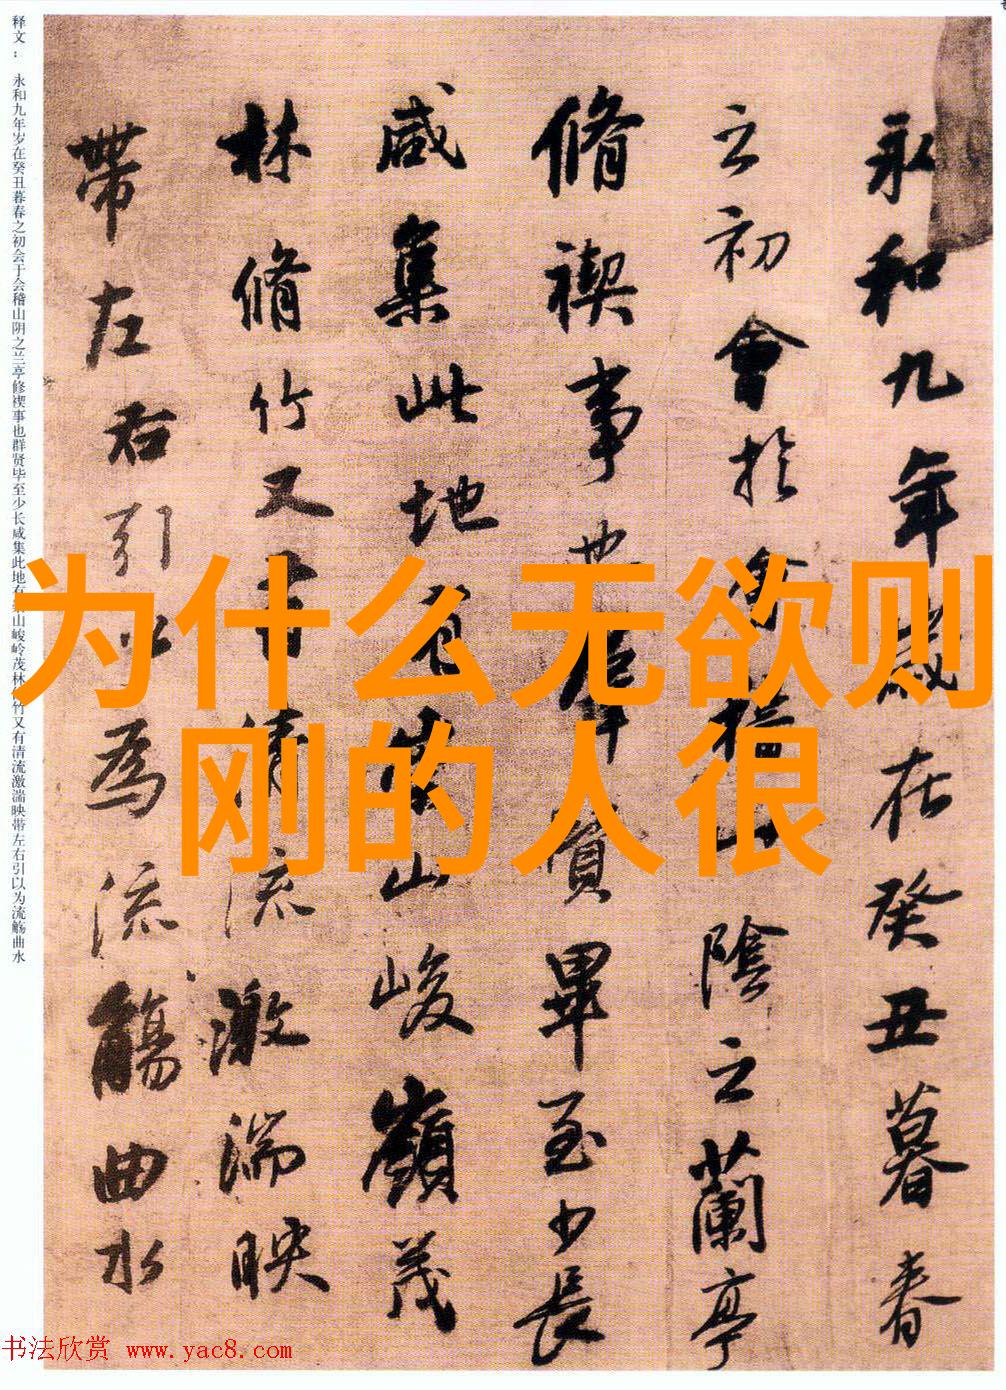 永和九年歲在癸丑暮春
之初會於會稽山陰之蘭亭
脩禊事也羣賢畢至少長
咸集此地有崇山峻嶺茂
林脩竹又有清流激湍映
帶左右引以為流觴曲水
释文： 永和九年岁在癸丑暮春之初会于会稽山阴之兰亭修禊事也群贤毕至少长咸集此地有山峻岭茂林竹又有清流激湍映带左右引以为流觞曲水
为什么无欲则
刚的人很
书法欣赏 www.yac8.com